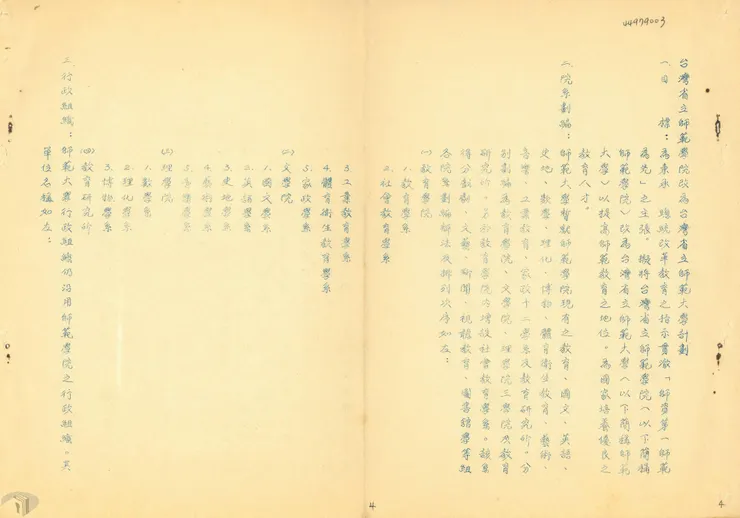 44979003
台灣省立師範學院改為台灣省立師範大學計劃
一、目標：為秉承　總統改革教育之指示貫澈「師資第一師範
為先」之主張。擬將台灣省立師範學院（以下簡稱
師範學院）改為台灣省立師範大學（以下簡稱師範
大學）以提高師範教育之地位。為國家培養優良之
教育人才。
二、院系劃編：師範大學暫就師範學院現有之教育、國文、英語、
史地、數學、理化、博物、體育衛生教育、藝術、
音樂、工業教育、家政十二學系及教育研究所。分
別劃編為教育學院、文學院、理學院三學院及教育
研究所。另於教育學院內增設社會教育學系。該系
得分戲劇、文藝、新聞、視聽教育、圖書館學等組
各院系劃編辦法及排列次序如左：
(一)教育學院
1.教育學系
2.社會教育學系
3.工業教育學系
4.體育衛生教育學系
5.家政學系
(二)文學院
1.國文學系
2.英語學系
3.史地學系
4.藝術學系
5.音樂學系
(三)理學院
1.數學系
2.理化學系
3.博物學系
(四)教育研究所
三、行政組織：師範大學行政組織仍沿用師範學院之行政組織。其
單位名稱如左：
4
4